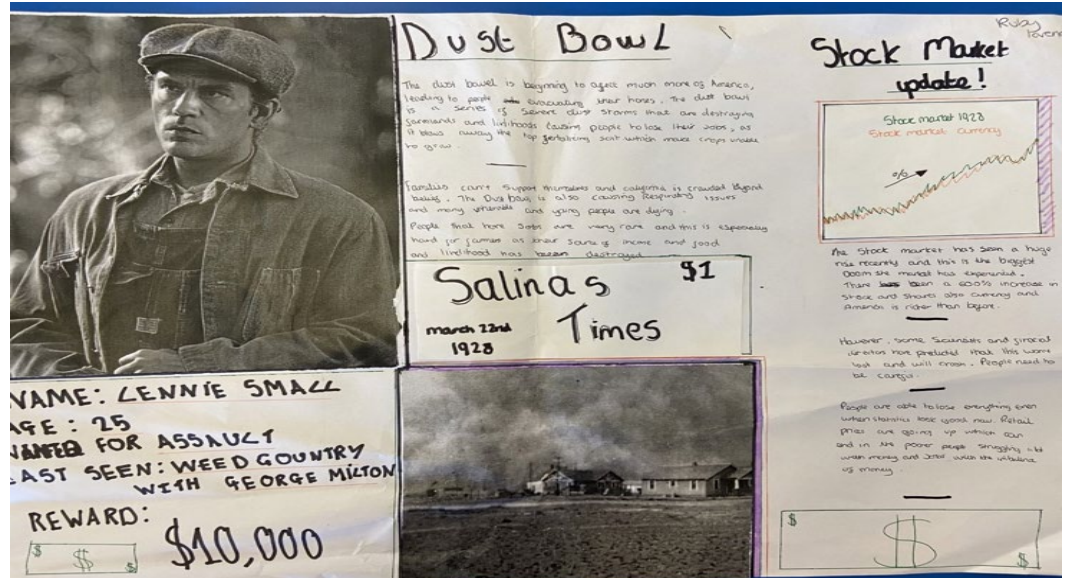 Dust Bowl
The dust bowel is beginning to affect much more of America,
leading to people evacuating their homes. The dust bowl
is a series of severe dust storms that are destroying
farmlands and livelihoods causing people to lose their jobs, as
it blows away the top fertalising soil which make crops unable
to grow.
Families can't support themselves and california is crowded beyond
belief. The Dust Bowl is also causing respiratory issues
and many vulnerable and young people are dying.
People that have jobs are very rare and this is especially
hard for farmers as their source of income and food
and livelihood has been destroyed
Salinas
$1
Times
march 22nd
1928
NAME: LENNIE SMALL
AGE: 25
WANTED FOR ASSAULT
LAST SEEN: WEED COUNTRY
WITH GEORGE MILTON
REWARD:
$10,000
$ $ $
Ruby
Stock Market
update!
Stock market 1928
Stock market currency
%
The Stock market has seen a huge
rise recently and this is the biggest
boom the market has experienced.
There been a 600% increase in
stock and shares also currency and
America is richer than before.
However, some scientists and
have predicted that this wont
last and will crash. People need to
be careful.
People are able to lose everything even
when statistics look good now. Retail
prices are going up which can
end in the poorer people struggling
with money and with the
of money.
$ $ $